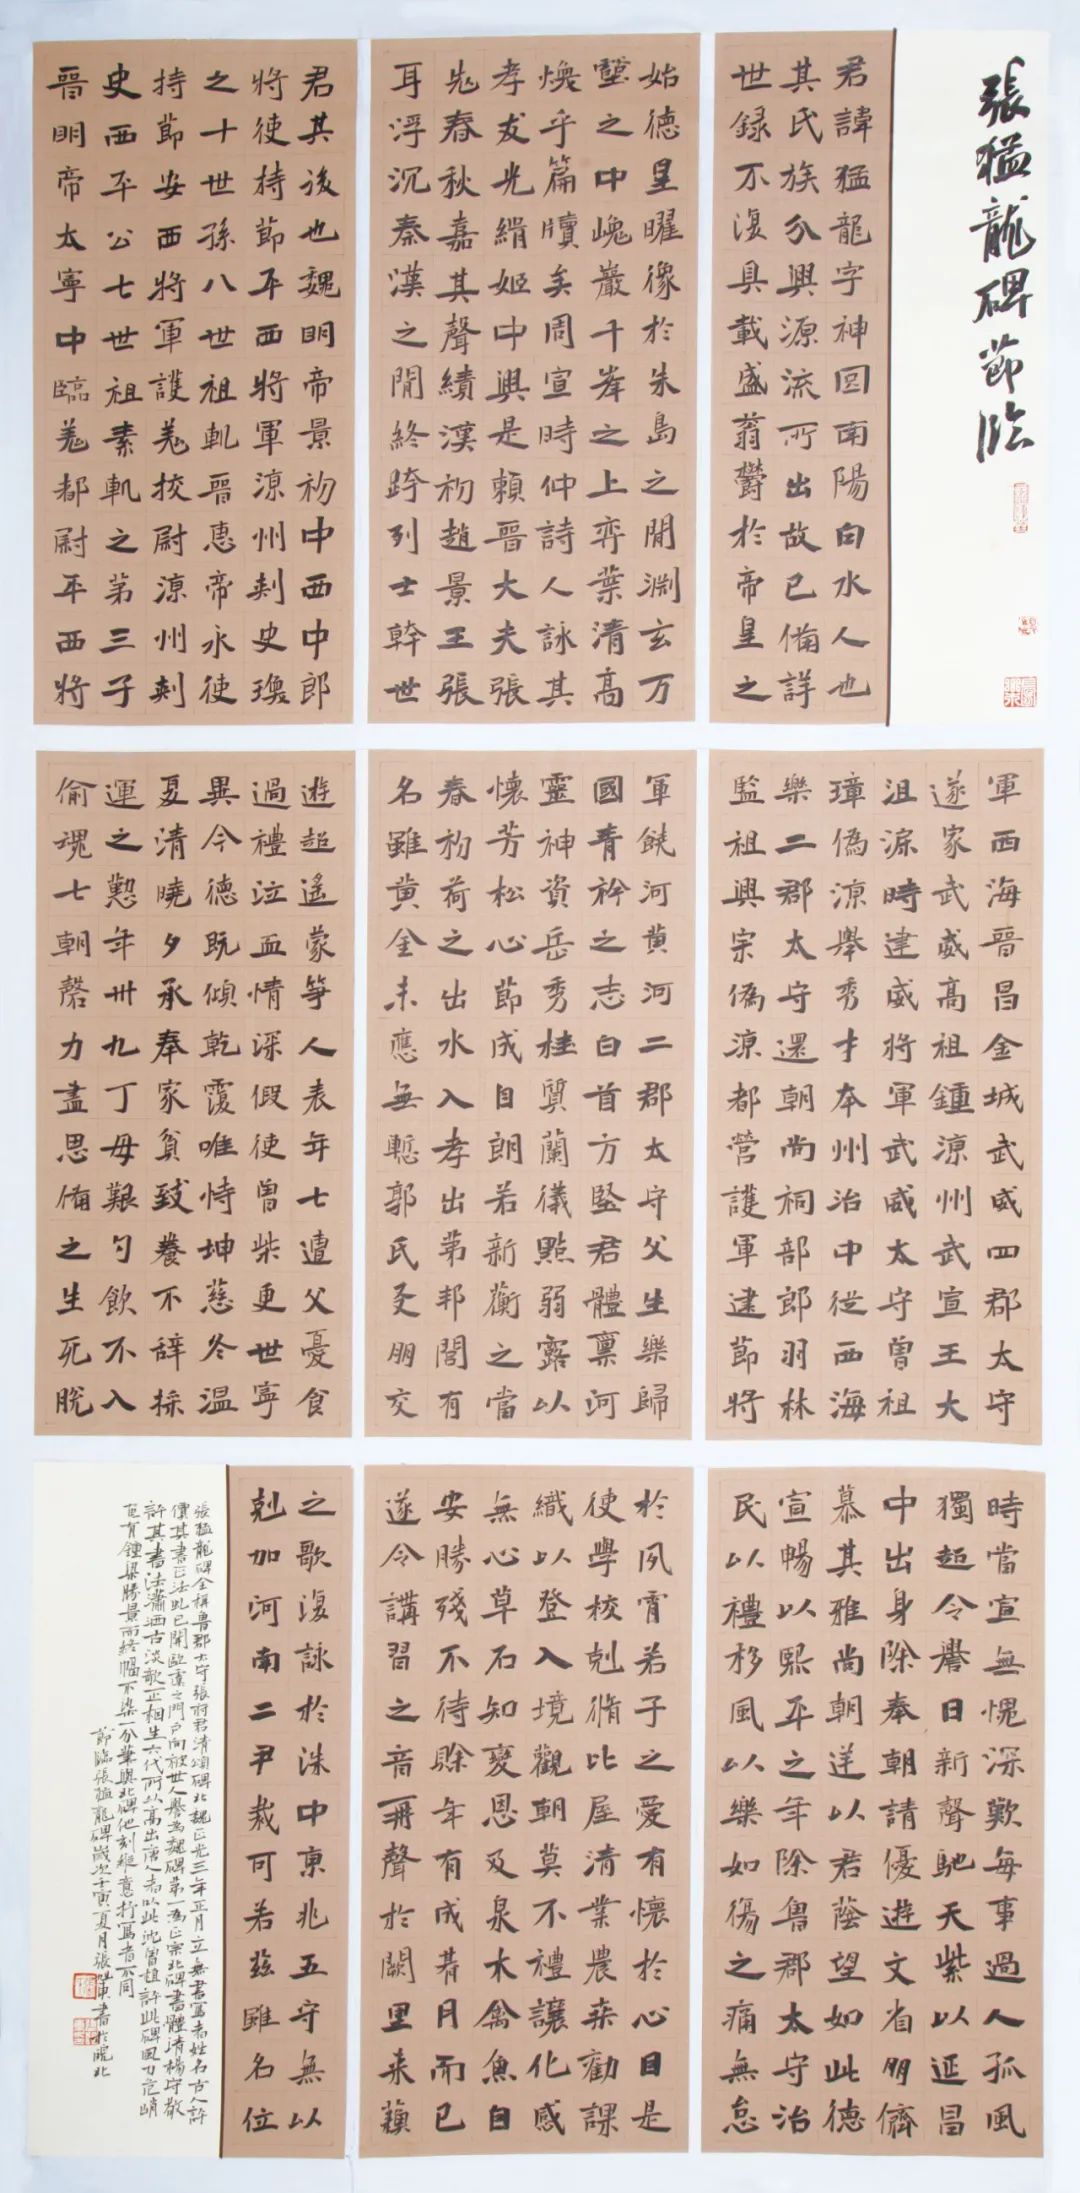 張猛龍碑節臨
君諱猛龍字神囧南陽白水人也
其氏族分興源流所出故已備詳
世録不復具載盛蓊欝於帝皇之
始德皇曜像於朱鳥之閒淵玄万
壑之中巉巖千峯之上弈葉清高
煥乎篇牘矣周宣時仲詩人詠其
孝友光緝姬中興是賴晉大夫張
老春秋嘉其聲績漢初趙景王張
耳浮沉秦漢之閒終跨列士幹世
君其後也魏明帝景初中西中郎
將使持節平西將軍涼州刺史瓊
之十世孫八世祖軌晉惠帝永使
持節安西將軍護羌挍尉涼州刺
史西平公七世祖素軌之第三子
晉明帝太寧中臨羌都尉平西將
軍西海晉昌金城武威四郡太守
遂家武威高祖鍾涼州武宣王大
沮渠時建威將軍武威太守曽祖
璋偽涼舉秀才本州治中從西海
樂二郡太守還朝尚祠部郎羽林
監祖興宗偽涼都營護軍建節將
軍饒河黃河二郡太守父生樂歸
國青衿之志白首方堅君體稟河
靈神資岳秀桂質蘭儀點弱露以
懷芳松心節成自朗若新蘅之當
春初荷之出水入孝出第邦閭有
名雖黃金未應無慙郭氏友朋交
遊超遙蒙筭人表年七遭父憂食
過禮泣血情深假使曽柴更世寧
異今德既傾乾覆唯恃坤慈冬温
夏清曉夕承奉家貧致養不辞採
運之懃年卅九丁母艱勺飲不入
偷魂七朝磬力盡思備之生死脫
時當宣無愧深歎每事過人孤風
獨超令譽日新聲馳天紫以延昌
中出身除奉朝請優遊文省朋儕
慕其雅尚朝逹以君蔭望如此德
宣暢以熙平之年除魯郡太守治
民以禮移風以樂如傷之痛無怠
於夙霄若子之愛有懷於心目是
使學校剋脩比屋清業農桒勸課
織以登入境觀朝莫不禮讓化感
無心草石知變恩及泉木禽魚自
安勝殘不待賒年有成朞月而已
遂令講習之音再聲於闕里来蘓
之歌復詠於洙中東兆五守無以
剋加河南二尹裁可若兹雖名位
張猛龍碑全稱魯郡太守張府君清頌碑北魏正光三年正月立無書寫者姓名古人評
價其書正法虬已開歐虞之門戶向被世人譽為魏碑第一為正宗北碑書體清楊守敬
評其書法瀟洒古淡奇正相生六代所以高出唐人者以此沈曾植評此碑風力危峭
包有鍾梁勝景而終幅不染一分筆與北碑他刻縱意抒寫者不同
節臨張猛龍碑歲次壬寅夏月張書於皖北